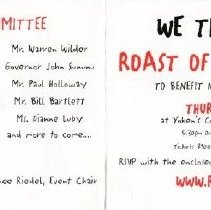 MMITTEE
Mr. Warren Wilder
Governor John Sununu
Mr. Paul Holloway
Mr. Bill Bartlett
Ms. Dianne Luby
and more to come....
Riedel, Event Chair
WE
ROAST OF
TO BENEFIT
THUR
at Yoken's
5:30
Tickets
RSVP with the enclosed
WWW.